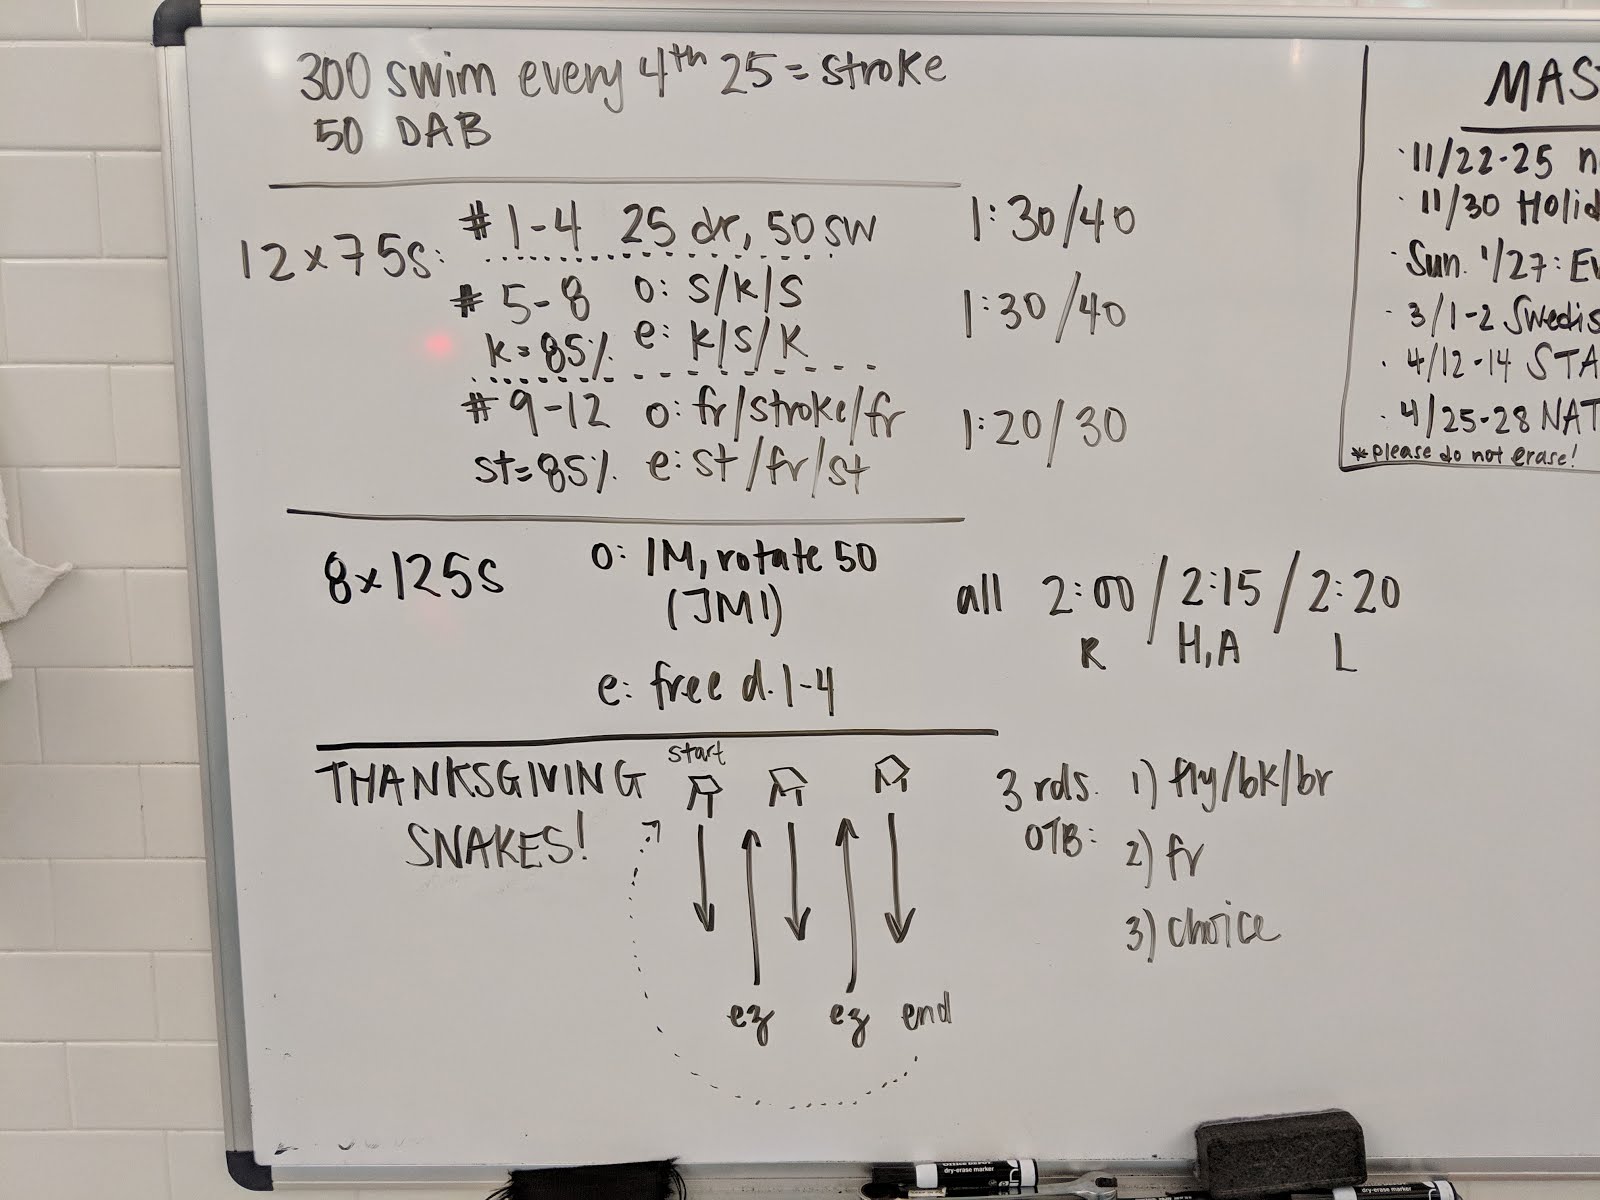 300 swim every 4th 25 = stroke
50 DAB
12 x 75s:
#1-4 25 dr, 50 sw 1:30/40
#5-8 o: s/k/s 1:30/40
k=85% e: k/s/k
#9-12 o: fr/stroke/fr 1:20/30
st=85% e: st/fr/st
8x125s o: IM, rotate 50
(JMI)
all 2:00 / 2:15 / 2:20
R H,A L
e: free d. 1-4
THANKSGIVING
SNAKES!
start
ez ez end
3 rds. 1) fly/bk/br
OTB: 2) fr
3) choice
MAS
· 11/22-25 n
· 11/30 Holid
· Sun. 1/27: Ev
· 3/1-2 Swedis
· 4/12-14 STA
· 4/25-28 NAT
*please do not erase!
dry-erase marker
dry-erase marker